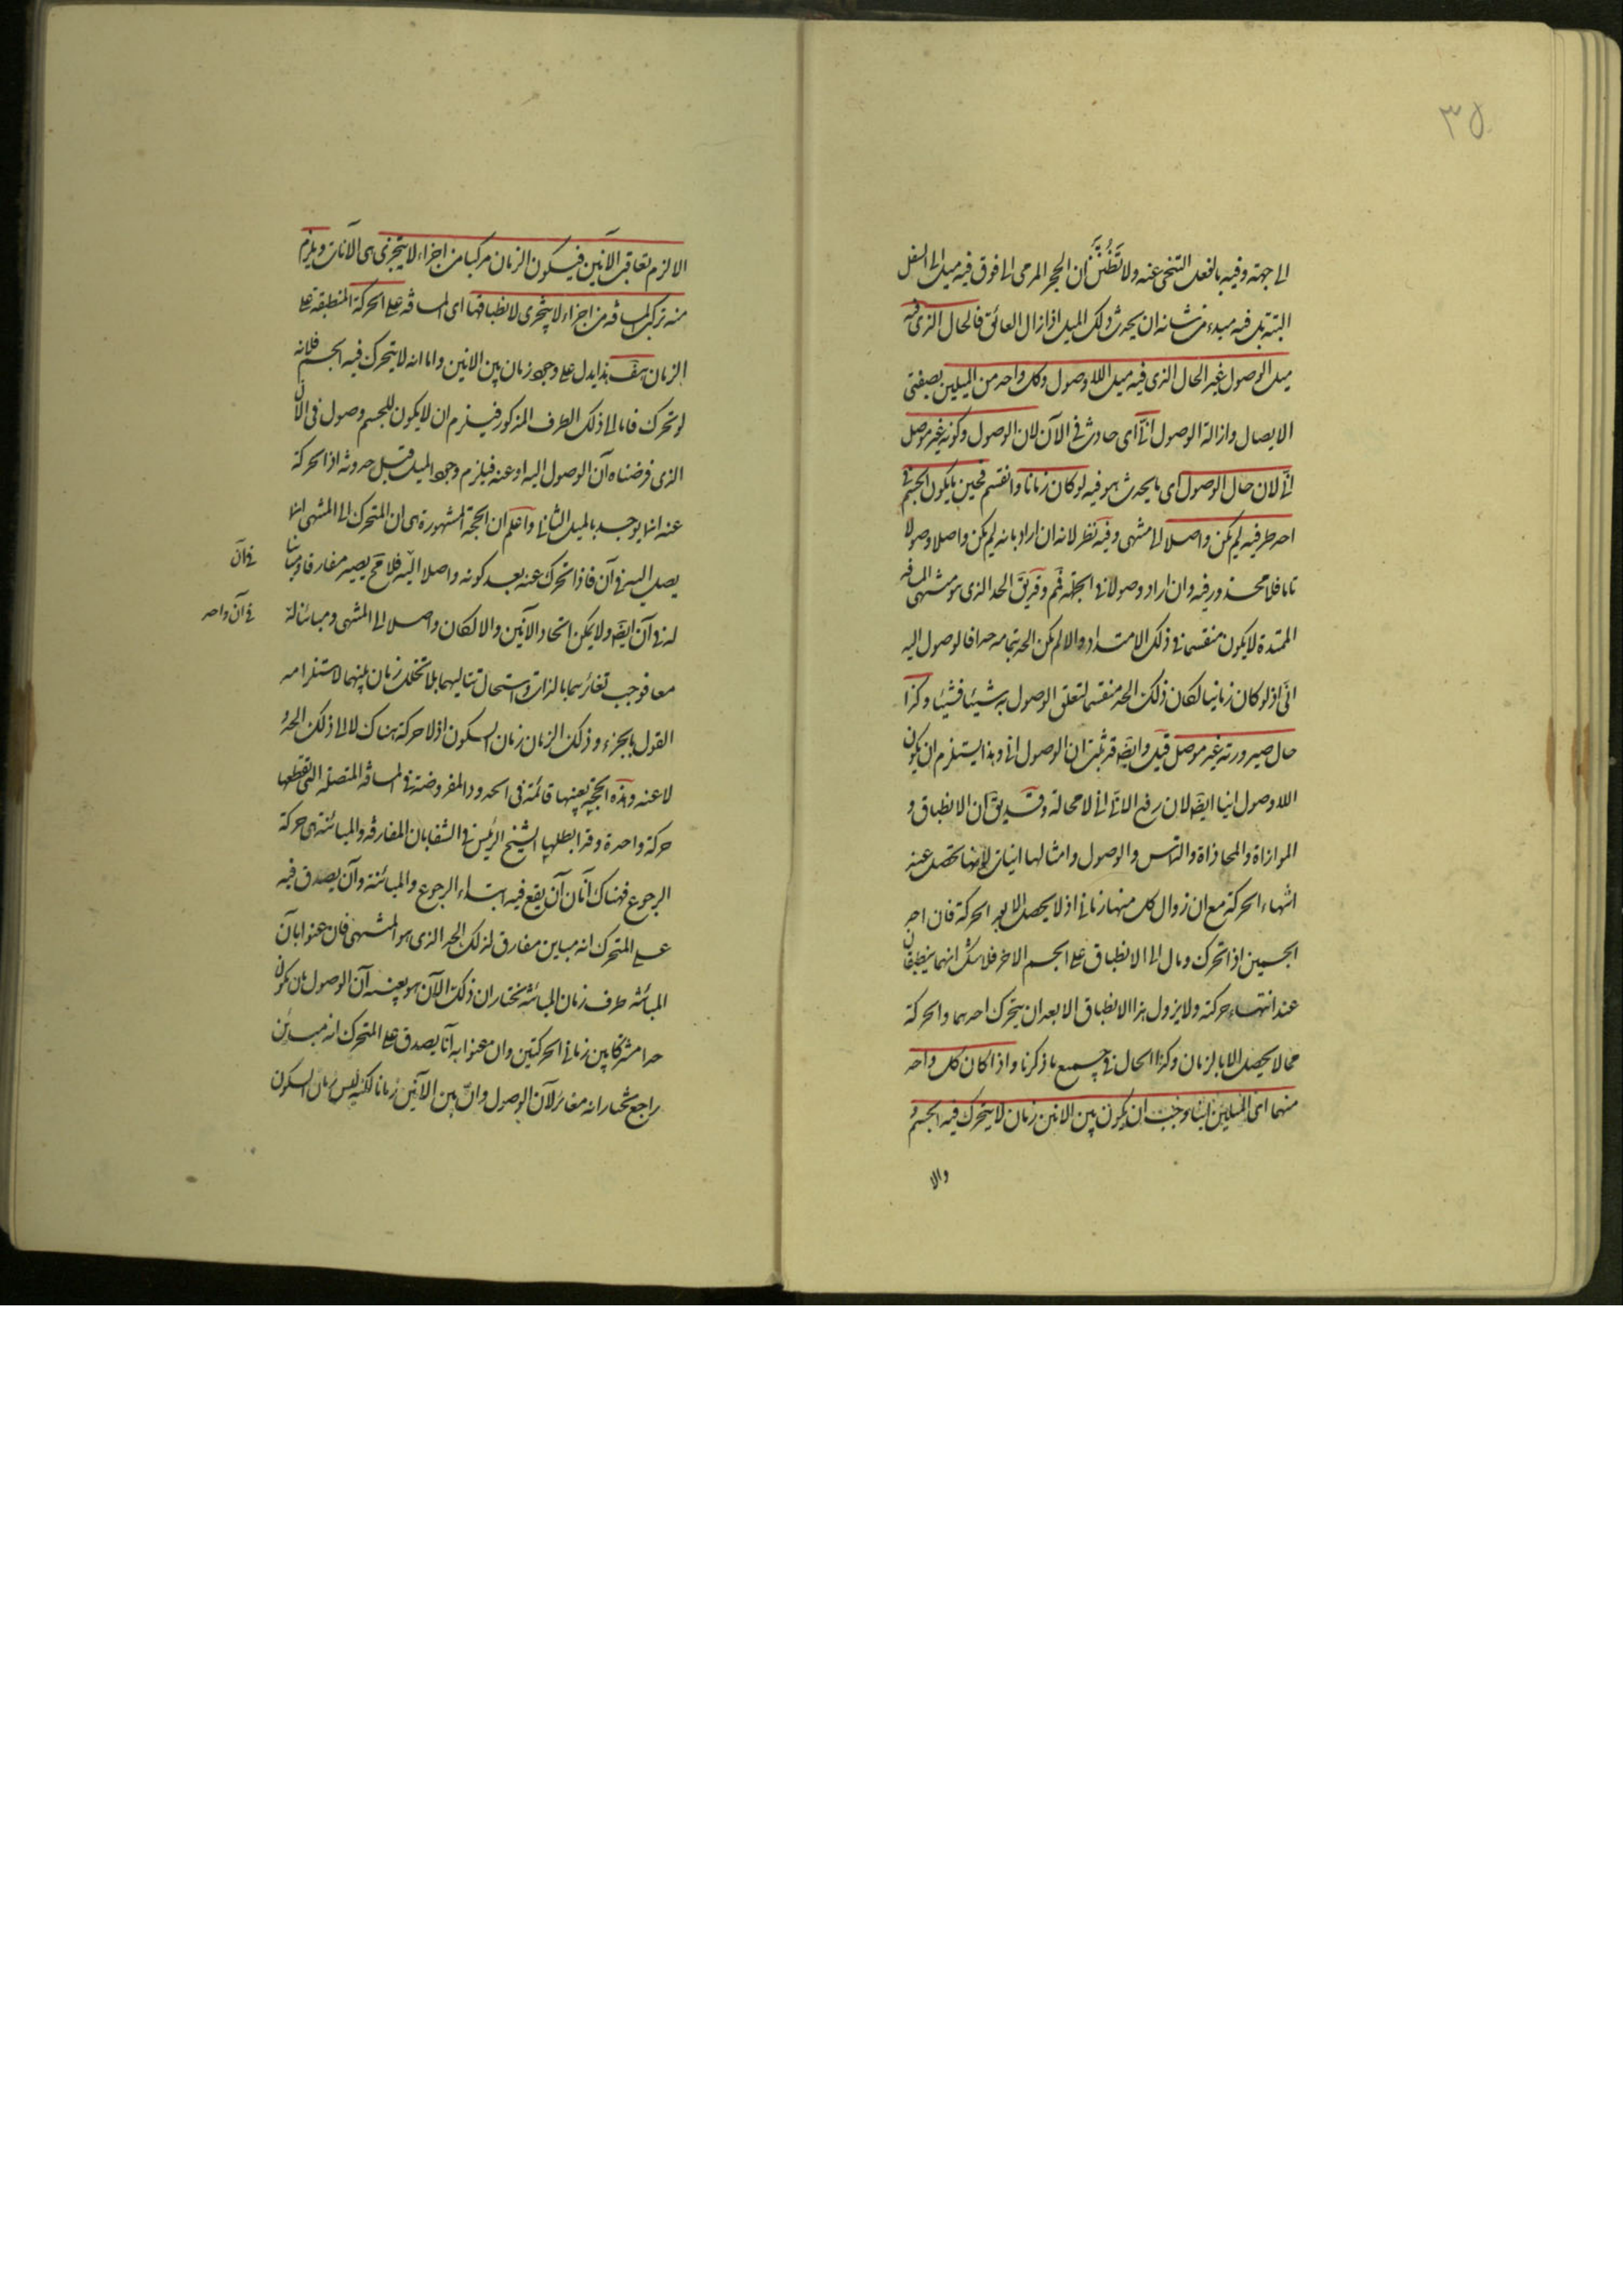 ٣٥
الى جهته وفيه بالفعل التنحى عنه ولا تظنن ان الحجر المرمى الى فوق فيه ميل الى السفل
البتة بل فيه مبدء من شانه ان يحدث ذلك الميل اذا زال العائق فالحال الذى فيه
ميل الوصول غير الحال الذى فيه ميل اللاوصول وكل واحد من الميلين بصفتى
الايصال وازالة الوصول انى اى حادث فى الآن لان الوصول وكونه غير موصل
انى لان حال الوصول اى ما يحدث هو فيه لو كان زمانا وانقسم فحين ما يكون الجسم فى
احد طرفيه لم يكن واصلا الى المنتهى وفيه نظر لانه ان اراد بانه لم يكن واصلا وصولا
تاما فلا محذور فيه وان اراد وصولا فى الجملة فمم وقد يق الحد الذى هو منتهى المسافة
الممتدة لا يكون منقسما فى ذلك الامتداد والا لم يكن الحد بتمامه حدا فالوصول اليه
انى اذ لو كان زمانيا لكان ذلك الحد منقسما لتعلق الوصول به شيئا فشيئا وكذا
حال صيرورته غير موصل قيل وايضا قد ثبت ان الوصول انى وهذا يستلزم ان يكون
اللاوصول انيا ايضا لان رفع الانى انى لا محالة وقد يق ان الانطباق و
الموازاة والمحاذاة والتماس والوصول وامثالها انيات لانها تحصل عند
انتهاء الحركة مع ان زوال كل منها زمانى اذ لا يحصل الا بعد الحركة فان احد
الجسمين اذا تحرك ومال الى الانطباق على الجسم الاخر فلا شك انهما ينطبقان
عند انتهاء حركته ولا يزول هذا الانطباق الا بعد ان يتحرك احدهما والحركة
مما لا يحصل الا بالزمان وكذا الحال فى جميع ما ذكرنا واذا كان كل واحد
منهما اى الميلين انيا وجب ان يكون بين الانين زمان لا يتحرك فيه الجسم و
والا
الا لزم تعاقب الآنين فيكون الزمان مركبا من اجزاء لا يتجزى هى الآنات ويلزم
منه تركب المسافة من اجزاء لا يتجزى لانطباقها اى المسافة على الحركة المنطبقة على
الزمان هف هذا يدل على وجود زمان بين الانين واما انه لا يتحرك فيه الجسم فلانه
لو تحرك فاما الى ذلك الطرف المذكور فيلزم ان لا يكون للجسم وصول فى الآن
الذى فرضناه آن الوصول اليه او عنه فيلزم وجود الميل قبل حدوثه اذ الحركة
عنه انما يوجد بالميل الثانى واعلم ان الحجة المشهورة هى ان المتحرك الى المنتهى انما
يصل اليه فى آن فاذا تحرك عنه بعد كونه واصلا اليه فلا مح يصير مفارقا ومباينا
له فى آن ايضا ولا يمكن اتحاد الآنين والا لكان واصلا الى المنتهى ومباينا له
فى آن
فى آن واحد
معا فوجب تغايرهما بالذات واستحال تتاليهما بلا تخلل زمان بينهما لاستلزامه
القول بالجزء وذلك الزمان زمان السكون اذ لا حركة هناك لا الى ذلك الحد و
لا عنه وهذه الحجة بعينها قائمة فى الحدود المفروضة فى المسافة المتصلة التى تقطعها
حركة واحدة وقد ابطلها الشيخ الرئيس فى الشفا بان المفارقة والمباينة هى حركة
الرجوع فهناك آنان آن يقع فيه ابتداء الرجوع والمباينة وآن يصدق فيه
على المتحرك انه مباين مفارق لذلك الحد الذى هو المنتهى فان عنوا بآن
المباينة طرف زمان المباينة نختار ان ذلك الآن هو بعينه آن الوصول بان يكون
حدا مشتركا بين زمانى الحركتين وان عنوا به آنا يصدق على المتحرك انه مباين
راجع نختار انه مغاير لآن الوصول وان بين الآنين زمانا لكنه ليس زمان السكون